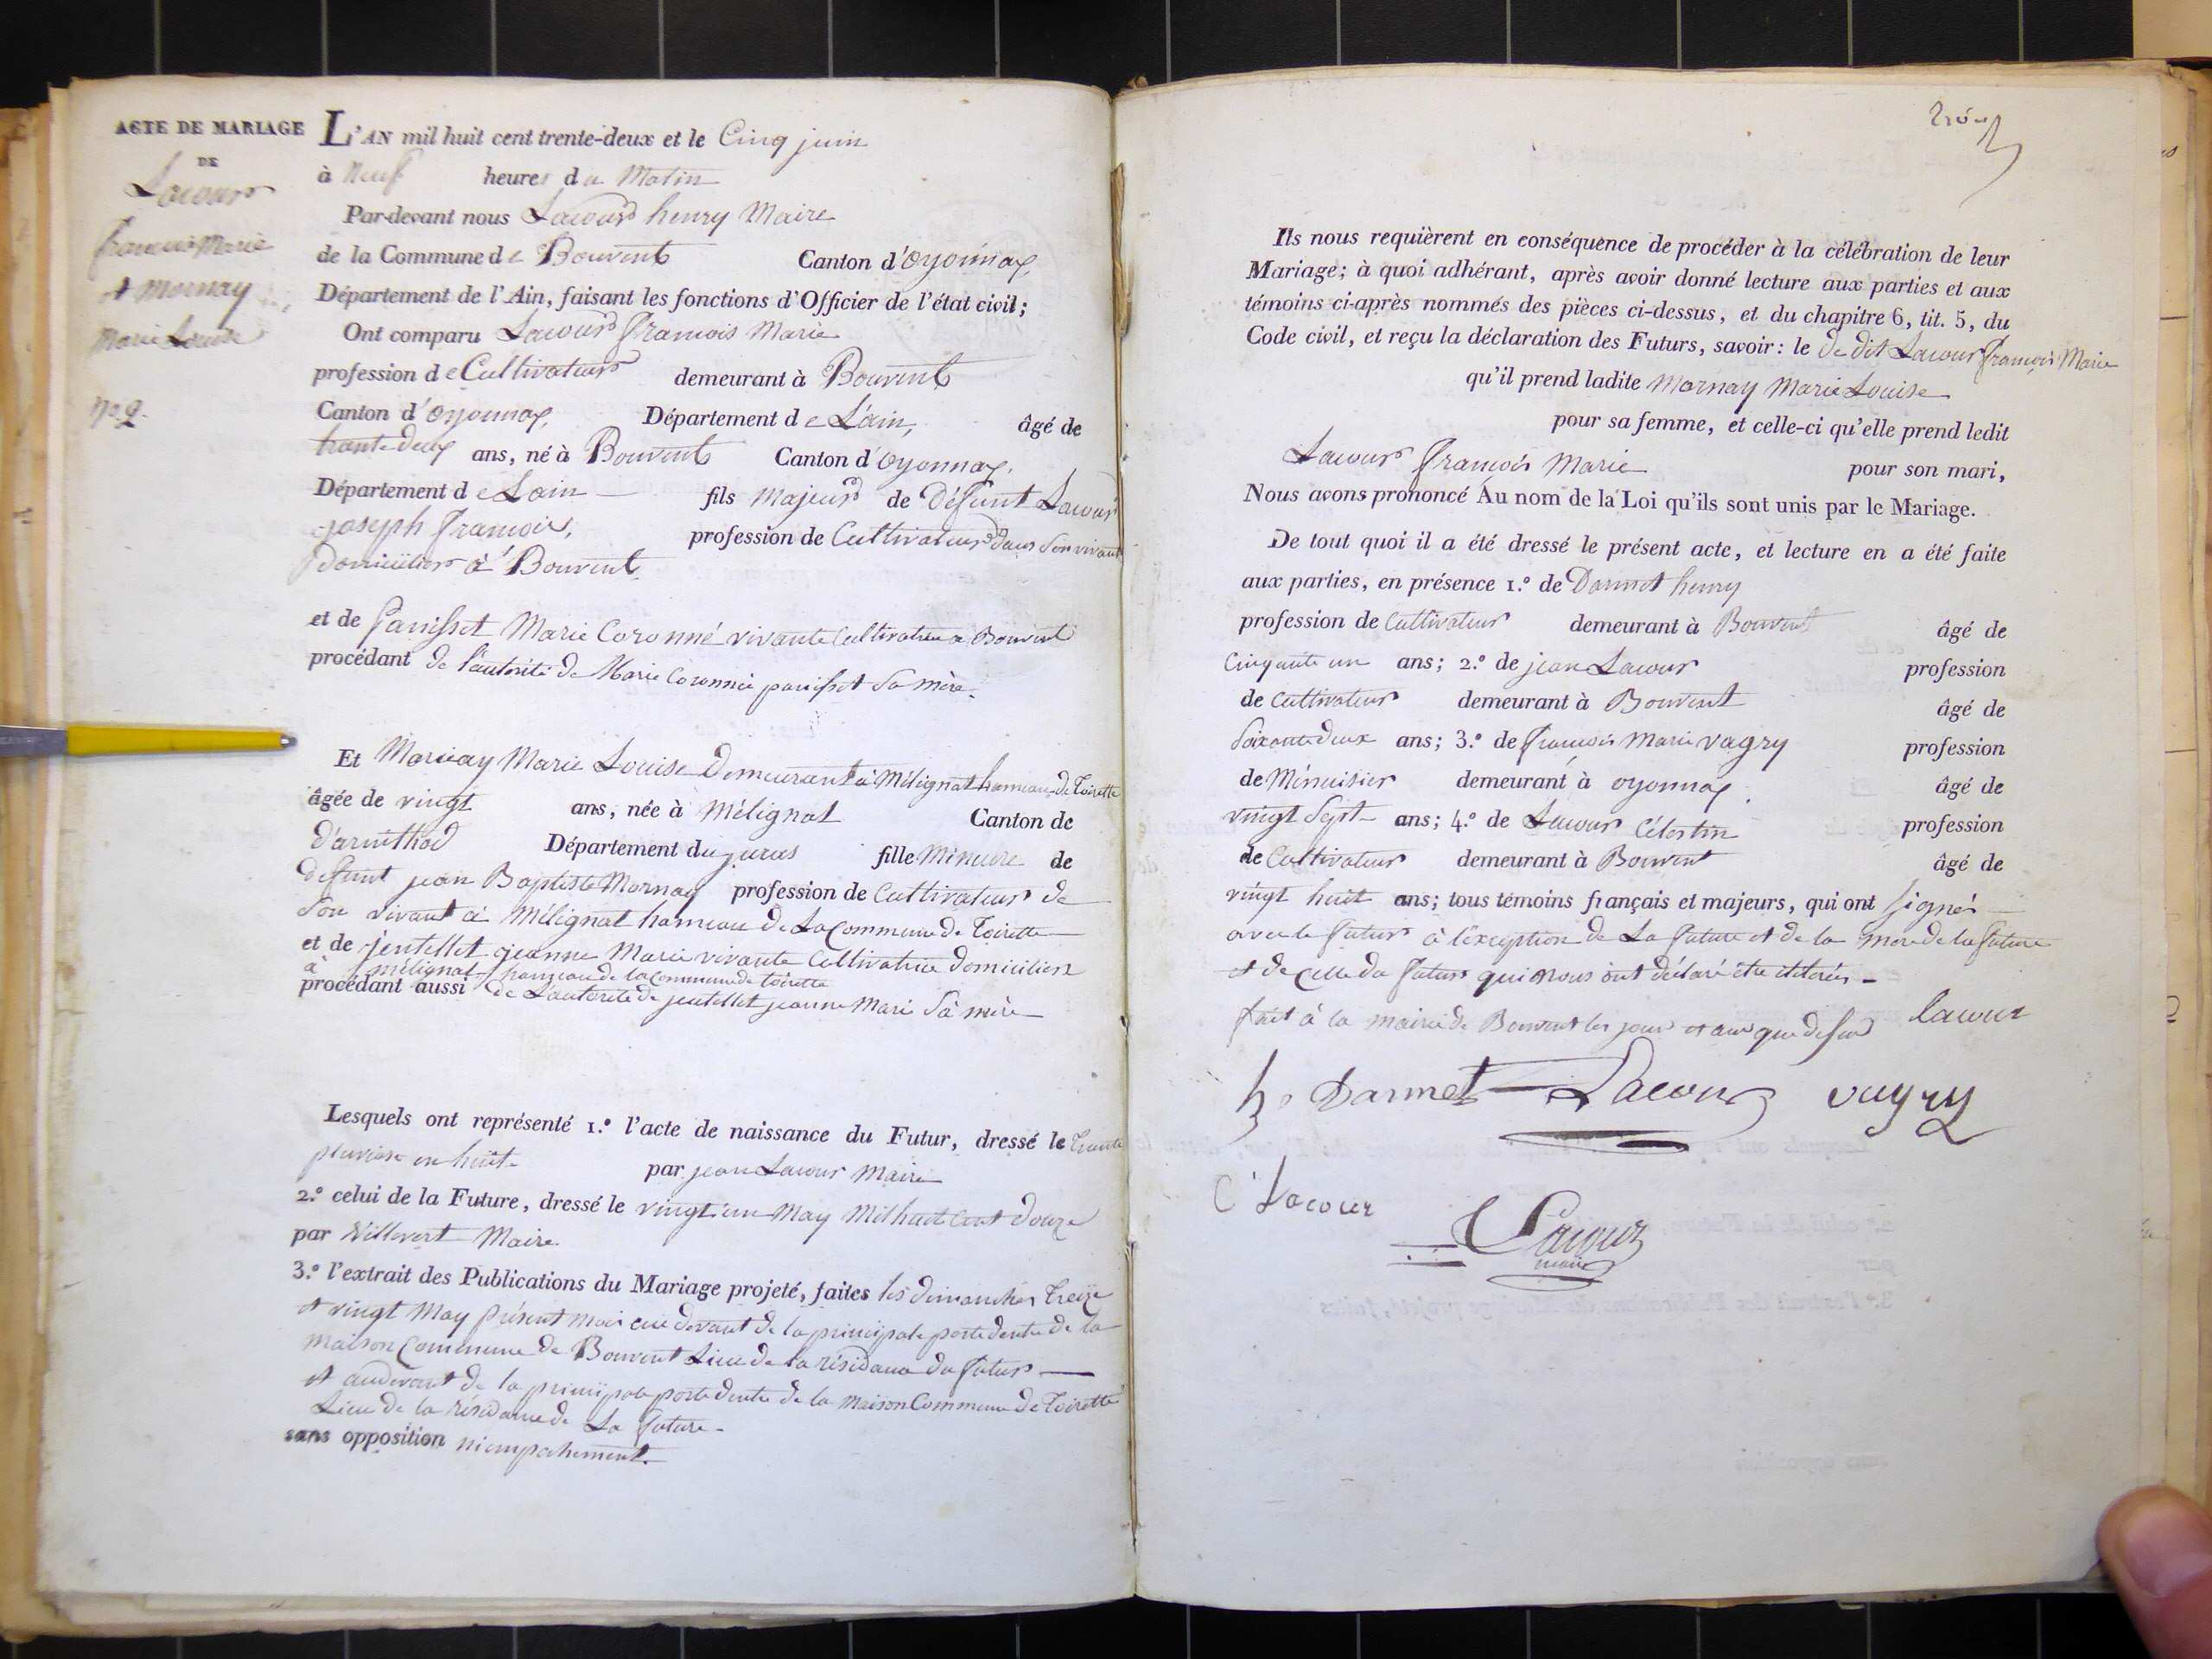 ACTE DE MARIAGE
DE
Lacour
François Marie
et Mornay
Marie Louise
No 2.
L'AN mil huit cent trente-deux et le Cinq juin
à Neuf heures du Matin
Par-devant nous Lacour henry Maire
de la Commune de Bouvent Canton d'Oyonnax
Département de l'Ain, faisant les fonctions d'Officier de l'état civil;
Ont comparu Lacour François Marie
profession de Cultivateur demeurant à Bouvent
Canton d'oyonnax, Département de L'ain, âgé de
trente deux ans, né à Bouvent Canton d'oyonnax.
Département de Lain fils Majeur de Défunt Lacour
joseph François, profession de Cultivateur dans Son vivant
Domicilier à Bouvent
et de Panisset Marie Coronné vivante Cultivatrice a Bouvent
procédant de l'autorité de Marie Coronnée panisset Sa mère.
Et Mornay Marie Louise Demeurant à Mélignat hameau de Toirette
âgée de vingt ans, née à Mélignat Canton de
D'arinthod Département du juras fille Mineure de
défunt jean Baptiste Mornay profession de Cultivateur de
Son vivant à Mélignat hameau de La Commune de Toirette
et de jentellet jeanne Marie vivante Cultivatrice domicilière
à mélignat hameau de la commune de toirette
procédant aussi de L'autorité de jentellet jeanne Mari Sa mère
Lesquels ont représenté 1.º l'acte de naissance du Futur, dressé le Trente
pluviose an huit par jean Lacour Maire
2.º celui de la Future, dressé le vingt un May Mil huit Cent Douze
par Villevert Maire
3.º l'extrait des Publications du Mariage projeté, faites les dimanches Treize
et vingt May présent mois au devant de la principale porte dentré de la
Maison Commune de Bouvent Lieu de la résidance du futur
et audevant de la principale porte dentré de la Maison Commune de Toirette
Lieu de la résidance de La future
sans opposition ni empechement.
Ils nous requièrent en conséquence de procéder à la célébration de leur
Mariage; à quoi adhérant, après avoir donné lecture aux parties et aux
témoins ci-après nommés des pièces ci-dessus, et du chapitre 6, tit. 5, du
Code civil, et reçu la déclaration des Futurs, savoir: le de dit Lacour François Marie
qu'il prend ladite Mornay Marie Louise
pour sa femme, et celle-ci qu'elle prend ledit
Lacour François Marie pour son mari,
Nous avons prononcé Au nom de la Loi qu'ils sont unis par le Mariage.
De tout quoi il a été dressé le présent acte, et lecture en a été faite
aux parties, en présence 1.º de Darmet henry
profession de Cultivateur demeurant à Bouvent âgé de
Cinquante un ans; 2.º de jean Lacour profession
de Cultivateur demeurant à Bouvent âgé de
Soixante deux ans; 3.º de François Marie vagry profession
de Ménuisier demeurant à oyonnax âgé de
vingt Sept ans; 4.º de Lacour Célestin profession
de Cultivateur demeurant à Bouvent âgé de
vingt huit ans; tous témoins français et majeurs, qui ont Signés
avec le futur à l'exception de La future et de la mere de la future
et de Celle du futur qui nous ont déclaré être iliterés
fait à la mairie de Bouvent les jour et an que dessus lacour
h. Darmet Lacour vagry
C. Lacour
Lacour
maire